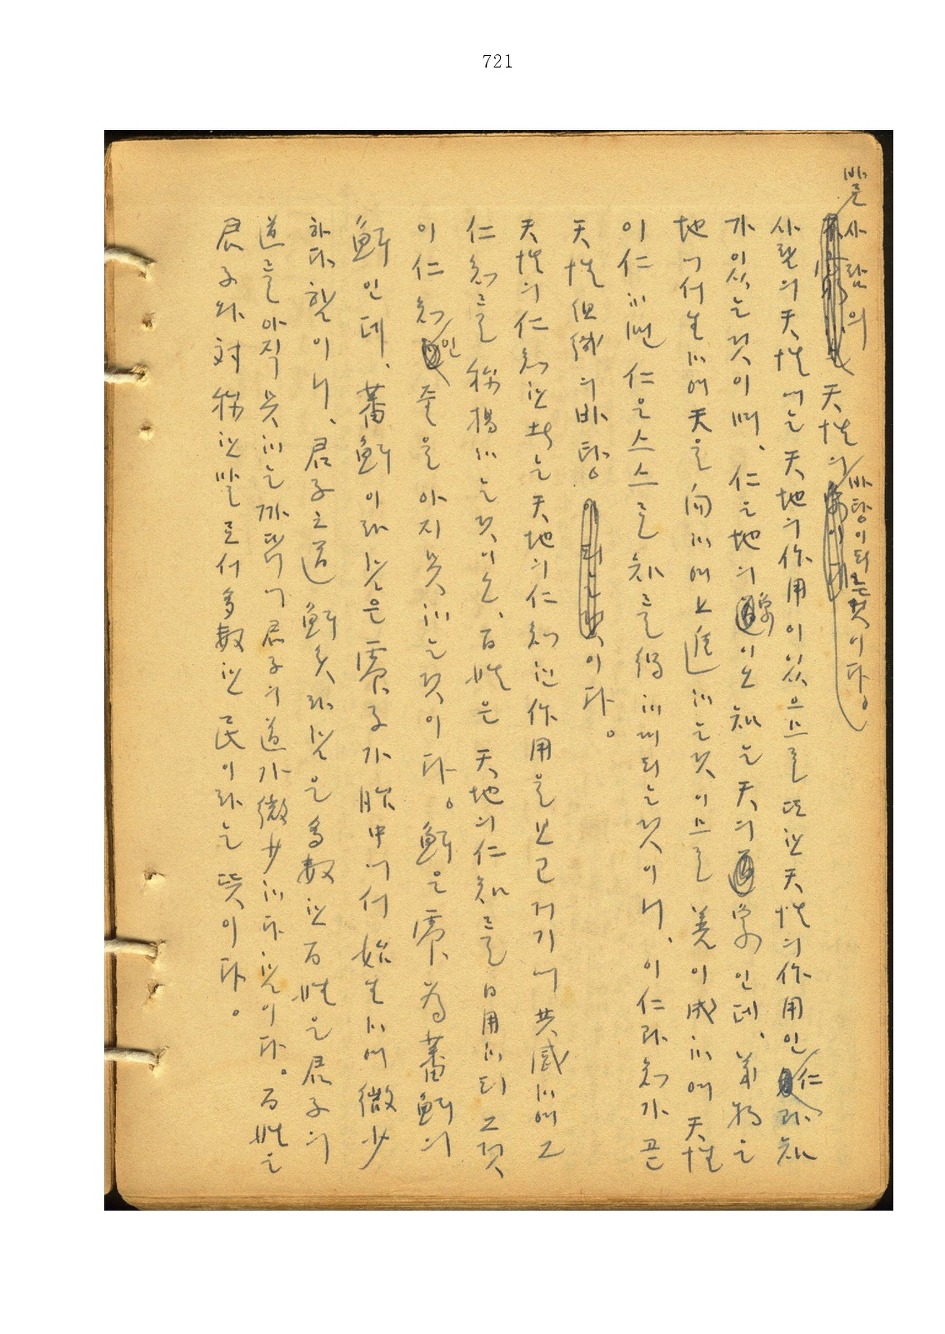 721
바른 사람의 天性의 바탕이 되는 것이다。
사람의 天性에는 天地의 作用이 있으므로 또한 天性의 作用인 仁과 知
가 있는 것이며、仁은 地의 象이오 知는 天의 象인데、萬物은
地에서 生하여 天을 向하여 上進하는 것이므로 善이 成하여 天性
이 仁하면 仁은 스스로 知를 得하게 되는 것이니、이 仁과 知가 곧
天性組織의 바탕이다。
天性의 仁知한 者는 天地의 仁知한 作用을 보고 거기에 共感하여 그
仁知를 稱揚하는 것이오、百姓은 天地의 仁知를 日用하되 그것
이 仁知인 줄을 아지 못하는 것이다。鮮은 震 為蕃鮮의
鮮인데、蕃鮮이라 함은 震子가 胎中에서 始生하여 微少
하다 함이니、君子之道 鮮矣라 함은 多數한 百姓은 君子의
道를 아직 못하는 까닭에 君子의 道가 微少하다 함이다。百姓은
君子와 対稱한 말로서 多數한 民이라는 뜻이다。